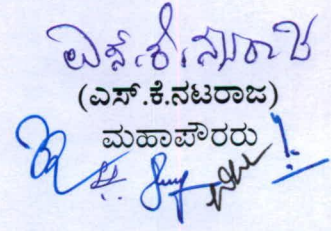 ಎಸ್.ಕೆ.ನಟರಾಜ
(ಎಸ್.ಕೆ.ನಟರಾಜ)
ಮಹಾಪೌರರು